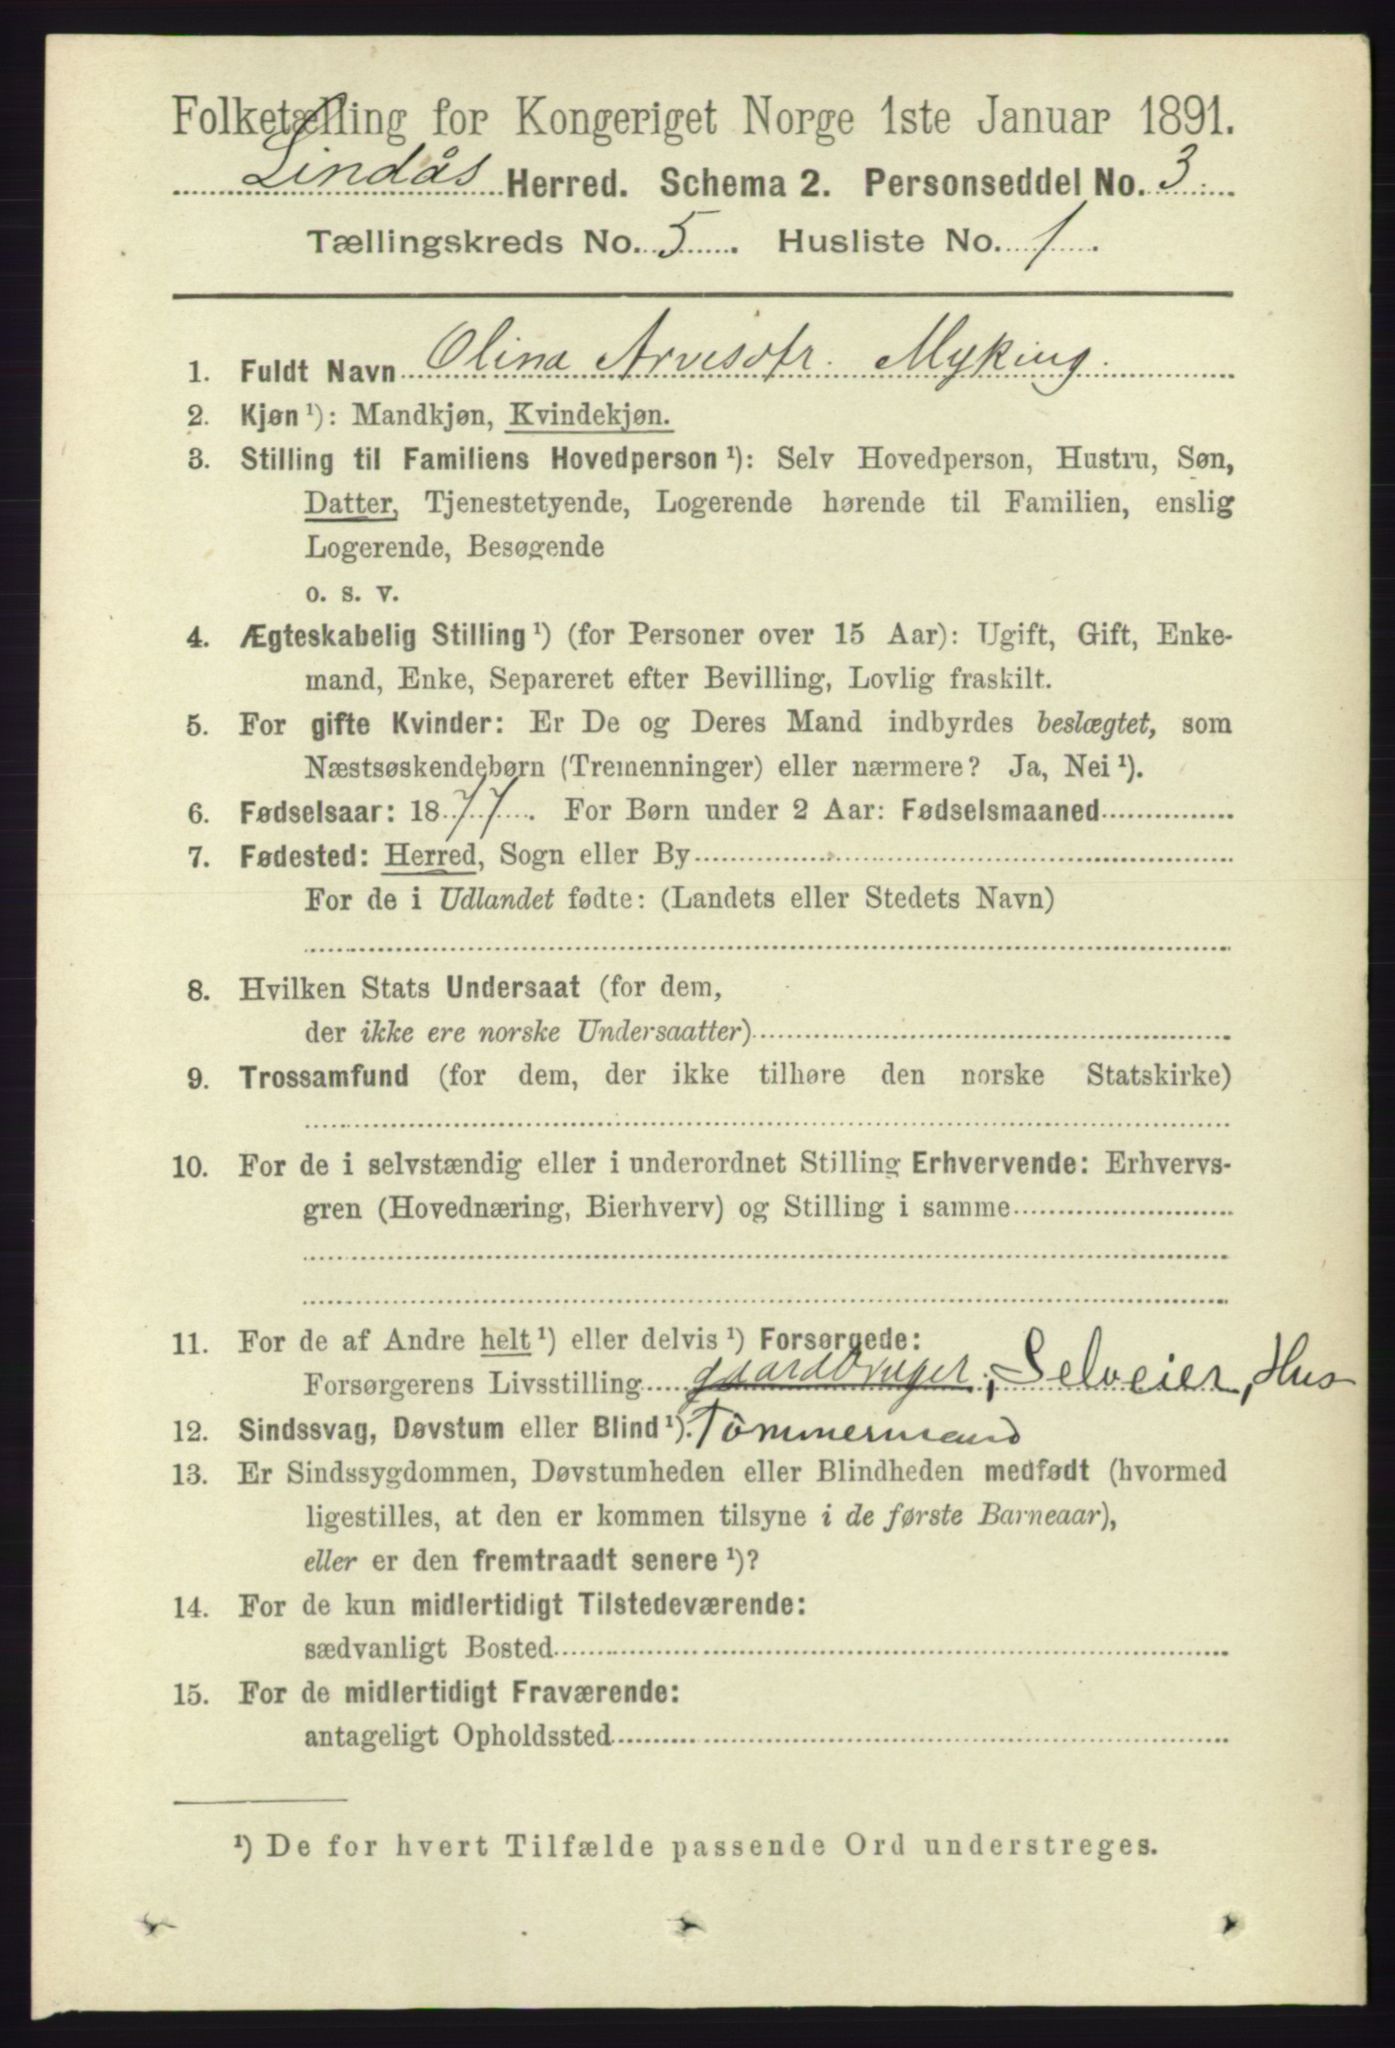 Folketælling for Kongeriget Norge 1ste Januar 1891.
Lindås Herred. Schema 2. Personseddel No. 3.
Tællingskreds No. 5. Husliste No. 1.
1. Fuldt Navn Olina Arvesdtr. Myking.
2. Kjøn¹): Mandkjøn, Kvindekjøn.
3. Stilling til Familiens Hovedperson¹): Selv Hovedperson, Hustru, Søn,
Datter, Tjenestetyende, Logerende hørende til Familien, enslig
Logerende, Besøgende
o. s. v.
4. Ægteskabelig Stilling¹) (for Personer over 15 Aar): Ugift, Gift, Enke-
mand, Enke, Separeret efter Bevilling, Lovlig fraskilt.
5. For gifte Kvinder: Er De og Deres Mand indbyrdes beslægtet, som
Næstsøskendebørn (Tremenninger) eller nærmere? Ja, Nei¹).
6. Fødselsaar: 1877. For Børn under 2 Aar: Fødselsmaaned
7. Fødested: Herred, Sogn eller By
For de i Udlandet fødte: (Landets eller Stedets Navn)
8. Hvilken Stats Undersaat (for dem,
der ikke ere norske Undersaatter)
9. Trossamfund (for dem, der ikke tilhøre den norske Statskirke)
10. For de i selvstændig eller i underordnet Stilling Erhvervende: Erhvervs-
gren (Hovednæring, Bierhverv) og Stilling i samme
11. For de af Andre helt¹) eller delvis¹) Forsørgede:
Forsørgerens Livsstilling gaardbruger, Selveier, Hus
12. Sindssvag, Døvstum eller Blind¹). Tömmermand
13. Er Sindssygdommen, Døvstumheden eller Blindheden medfødt (hvormed
ligestilles, at den er kommen tilsyne i de første Barneaar),
eller er den fremtraadt senere¹)?
14. For de kun midlertidigt Tilstedeværende:
sædvanligt Bosted
15. For de midlertidigt Fraværende:
antageligt Opholdssted
¹) De for hvert Tilfælde passende Ord understreges.